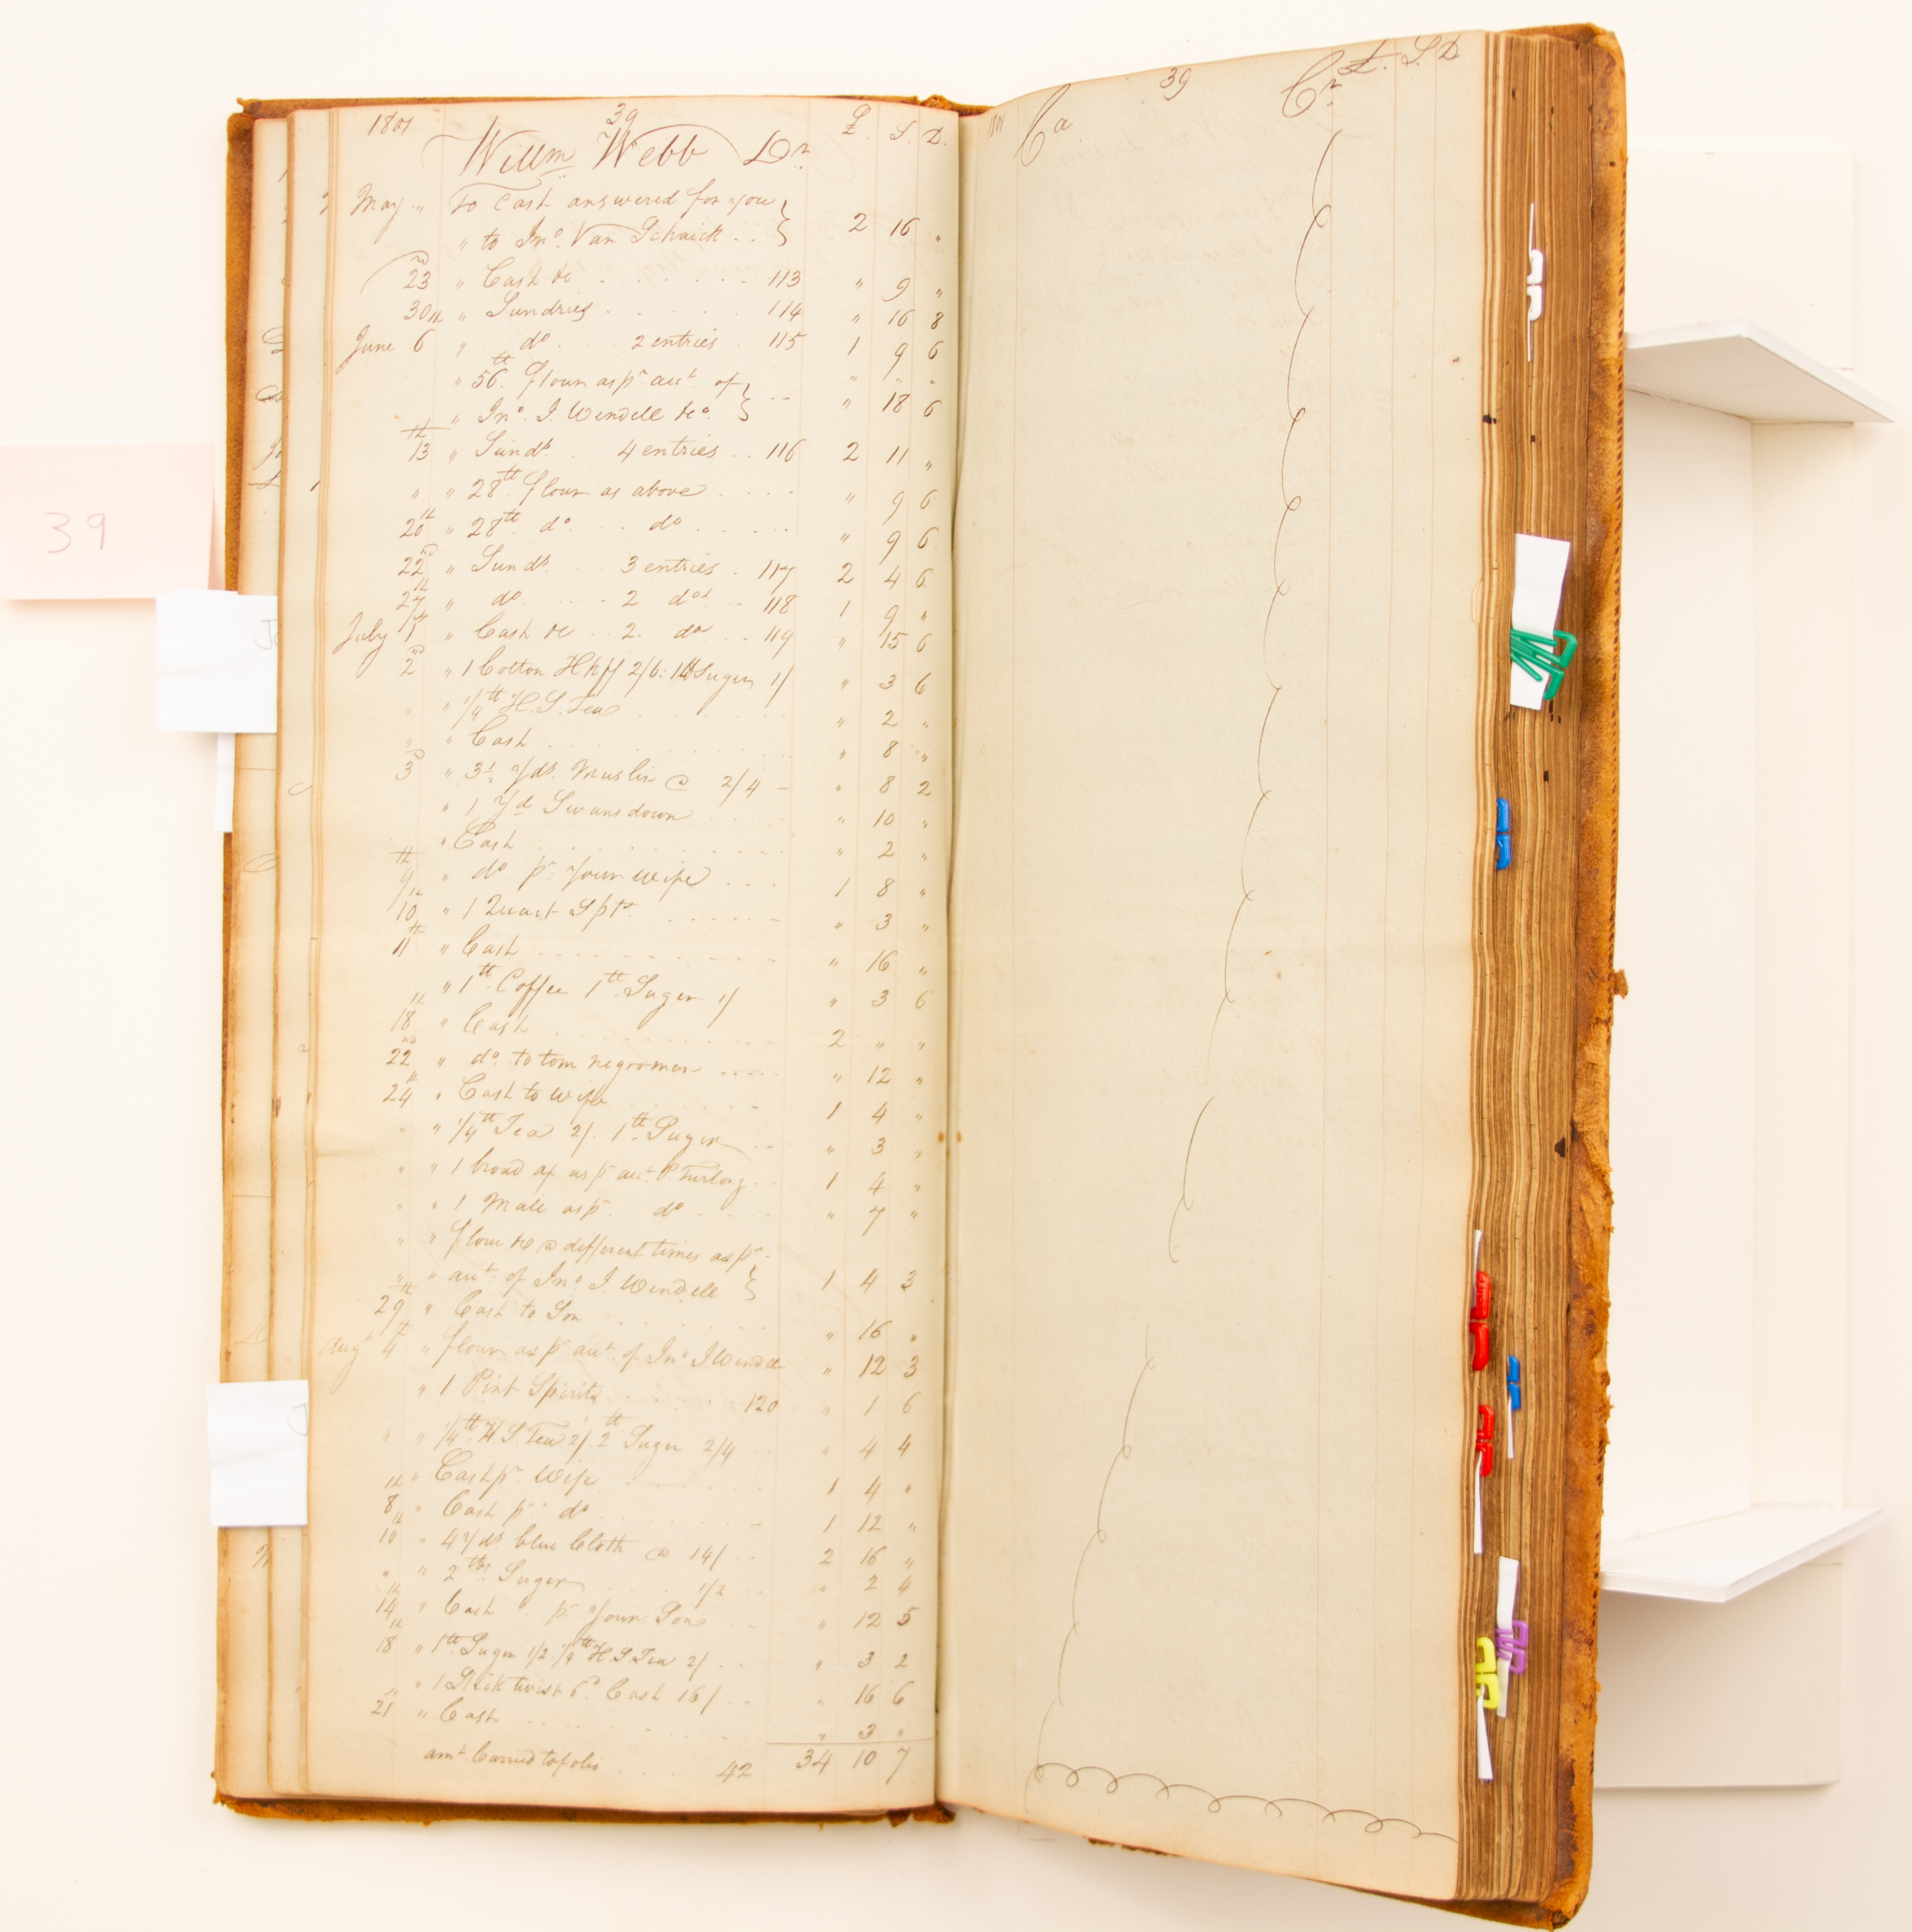 39
1801 39 £. S. D.
Willm Webb Dr
May " To Cash answered for you
" to Jno. Van Schaick . . 2 16 "
23 " Cash &c 113 " 9 "
30th " Sundries 114 " 16 8
June 6 " do . . 2 entries . 115 1 9 6
" 56 tt flour as pr. acct of " " "
" Jno. I. Wendell &c. " 18 6
13th " Sunds. . 4 entries . . 116 2 11 "
" " 28 tt flour as above " 9 6
20th " 28 tt do. . . do " 9 6
22nd " Sunds. . . 3 entries . 117 2 4 6
27th " do . . . 2 dos . . 118 1 9 "
July 1st " Cash &c . . 2. do . . 119 " 15 6
2nd " 1 Cotton Hkff 2/6: 1tt Suger 1/ " 3 6
" " 1/4 tt H. S. Tea " 2 "
" " Cash " 8 "
3d " 3½ Yds. Muslin @ 2/4 - " 8 2
" 1 Yd Swansdown " 10 "
" Cash " 2 "
9th " do pr. Your wife 1 8 "
10th " 1 Quart Spts. " 3 "
11th " Cash " 16 "
" 1 tt Coffee 1 tt Suger 1/ " 3 6
18th " Cash 2 " "
22nd " do. to tom negroman " 12 "
24th " Cash to wife 1 4 "
" " 1/4 tt Tea 2/. 1 tt Suger " 3 "
" " 1 broad ax as pr acct. P. Furlong 1 4 "
" " 1 Male as pr. do " 7 "
" " flour &c @ different times as pr
" " acct. of Jno. I Wendell 1 4 3
29th " Cash to Son " 16 "
Augt 4th " flour as pr acct of Jno. I Wendell " 12 3
" 1 Pint Spirits 120 " 1 6
" " 1/4 tt H. S. Tea 2/. 2 tt Suger 2/4 " 4 4
" Cash pr. Wife 1 4 "
8th " Cash pr. do 1 12 "
10th " 4 Yds blue Cloth @ 14/ 2 16 "
" " 2 tts Suger 1/2 " 2 4
14th " Cash pr Your Son " 12 5
18th " 1 tt Suger 1/2. 1/4 tt H. S. Tea 2/ " 3 2
" " 1 Stick twist 6d Cash 16/ " 16 6
21 " Cash " 3 "
amt Carried to folio 42 34 10 7
39
Ca Cr £. S. D.